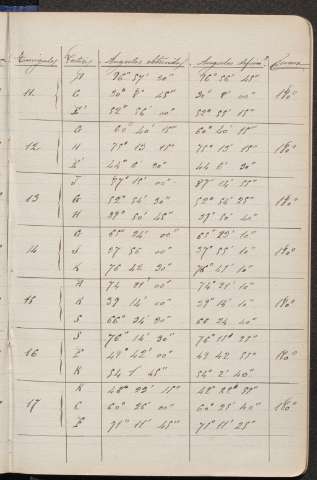 Triangulos Vertices Angulos obtenidos Angulos defin.ˢ Suma
96° 57' 30" 96° 56' 45"
11 C 30° 8' 45" 30° 8' 00" 180°
E' 52° 56' 00" 52° 55' 15"
G 60° 40' 15" 60° 40' 15"
12 H 75° 13' 15" 75° 13' 15" 180°
44° 6' 30" 44 6' 30"
J 87° 15' 00" 87° 14' 55"
13 G 52° 54' 30" 52° 54' 25" 180°
H 39° 50' 45" 39° 50' 40"
G 65° 24' 00" 65° 23' 10"
14 J 37° 56' 00" 37° 55' 10" 180°
K 76 42 30" 76° 41' 40"
H 74 21' 00" 74° 21' 10"
15 K 39 14' 00" 39° 14' 10" 180°
S 66° 24' 30" 66 24 40"
S 76° 14' 30" 76° 11' 25"
16 E' 49° 42' 00" 49 42 55" 180°
K 54 1' 45" 54° 2' 40"
K 48° 22' 15" 48° 22' 55"
17 C 60° 26' 00" 60° 25' 40" 180°
E' 71° 11' 45" 71° 11' 25"